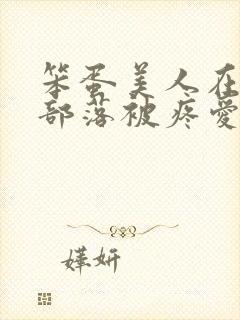 笨蛋美人在
部落被疼爱
嬅妍